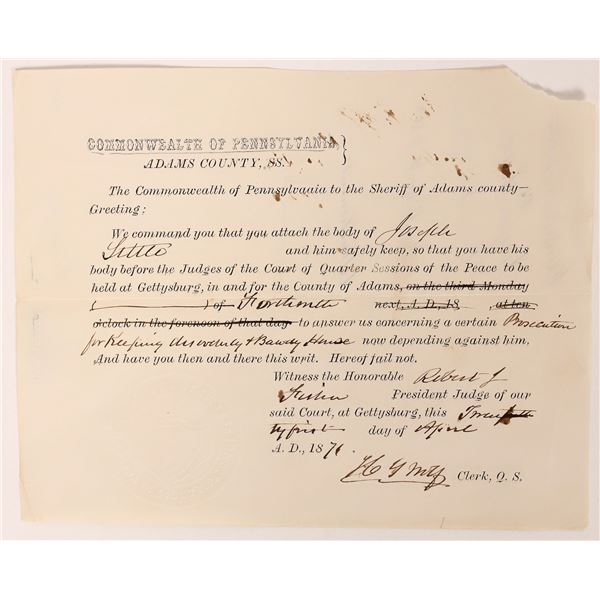 COMMONWEALTH OF PENNSYLVANIA, }
ADAMS COUNTY, SS.
The Commonwealth of Pennsylvania to the Sheriff of Adams county—
Greeting:
We command you that you attach the body of Joseph
Little and him safely keep, so that you have his
body before the Judges of the Court of Quarter Sessions of the Peace to be
held at Gettysburg, in and for the County of Adams, on the third Monday
( ) of Forthwith next, A. D., 18 at ten
o'clock in the forenoon of that day to answer us concerning a certain Prosecution
for Keeping disorderly & Bawdy House now depending against him,
And have you then and there this writ. Hereof fail not.
Witness the Honorable Robert J
Fisher President Judge of our
said Court, at Gettysburg, this Twen
ty first day of April
A. D., 1871.
Clerk, Q. S.